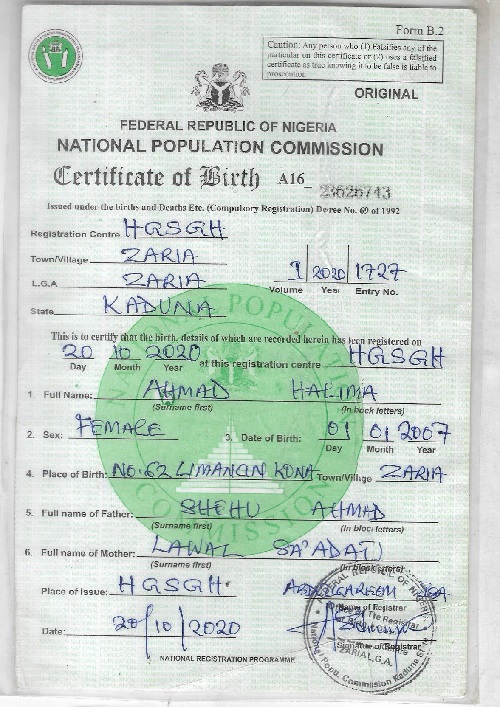 Form B.2
Caution: Any person who (1) Falsifies any of the
particular on this certificate or (2) uses a falsified
certificate as true knowing it to be false is liable to
prosecution.
ORIGINAL
FEDERAL REPUBLIC OF NIGERIA
NATIONAL POPULATION COMMISSION
Certificate of Birth A16_ 23626743
Issued under the births and Deaths Etc. (Compulsory Registration) Decree No. 69 of 1992
Registration Centre HGSGH
Town/Village ZARIA
L.G.A ZARIA
9 2020 1727
Volume Year Entry No.
State KADUNA
This is to certify that the birth, details of which are recorded herein has been registered on
20 10 2020 at this registration centre HGSGH
Day Month Year
1. Full Name: AHMAD HALIMA
(Surname first) (In block letters)
2. Sex: FEMALE 3. Date of Birth: 01 01 2007
Day Month Year
4. Place of Birth: NO. 62 LIMANCIN KONA Town/Village ZARIA
5. Full name of Father: SHEHU AHMAD
(Surname first) (In block letters)
6. Full name of Mother: LAWAL SA'ADATU
(Surname first) (In block letters)
Place of Issue: HGSGH
Name of Registrar
Date: 20/10/2020
Signature of Registrar
ZARIA L.G.A.
NATIONAL REGISTRATION PROGRAMME